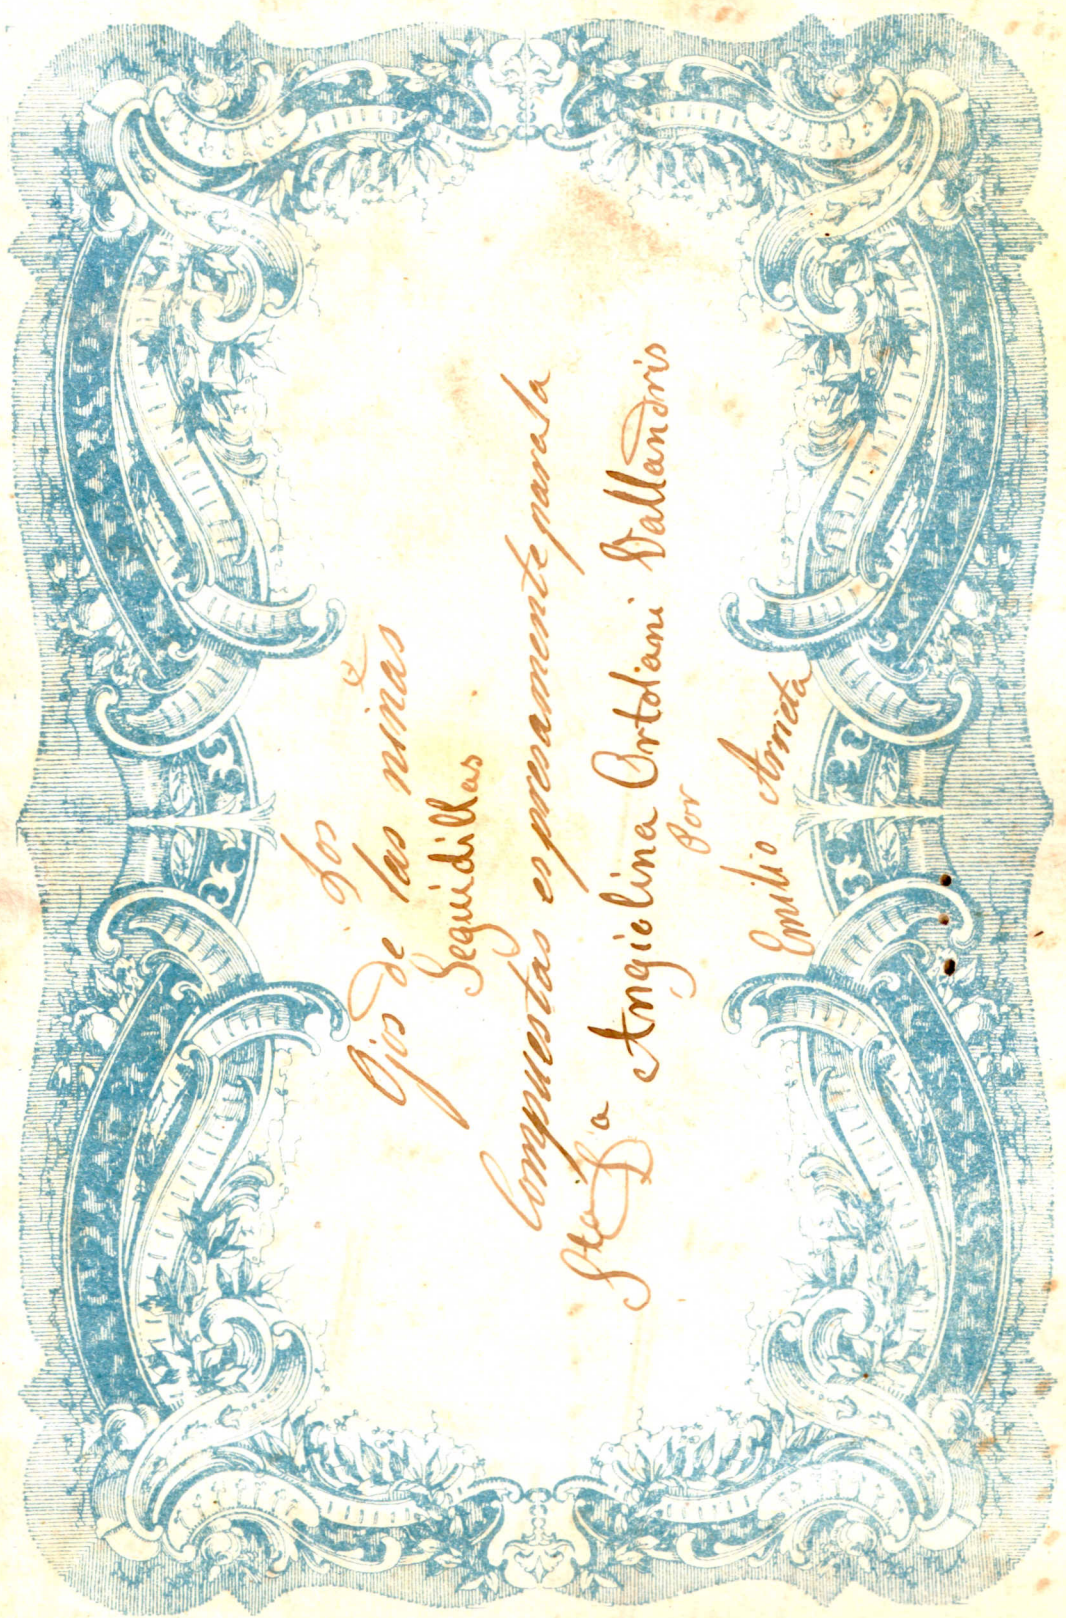 Los
Ojos de las niñas
Seguidillas
Compuestas espresamente para la
Sta D.a Angiolina Ortolani Vallandris
Por
Emilio Arrieta